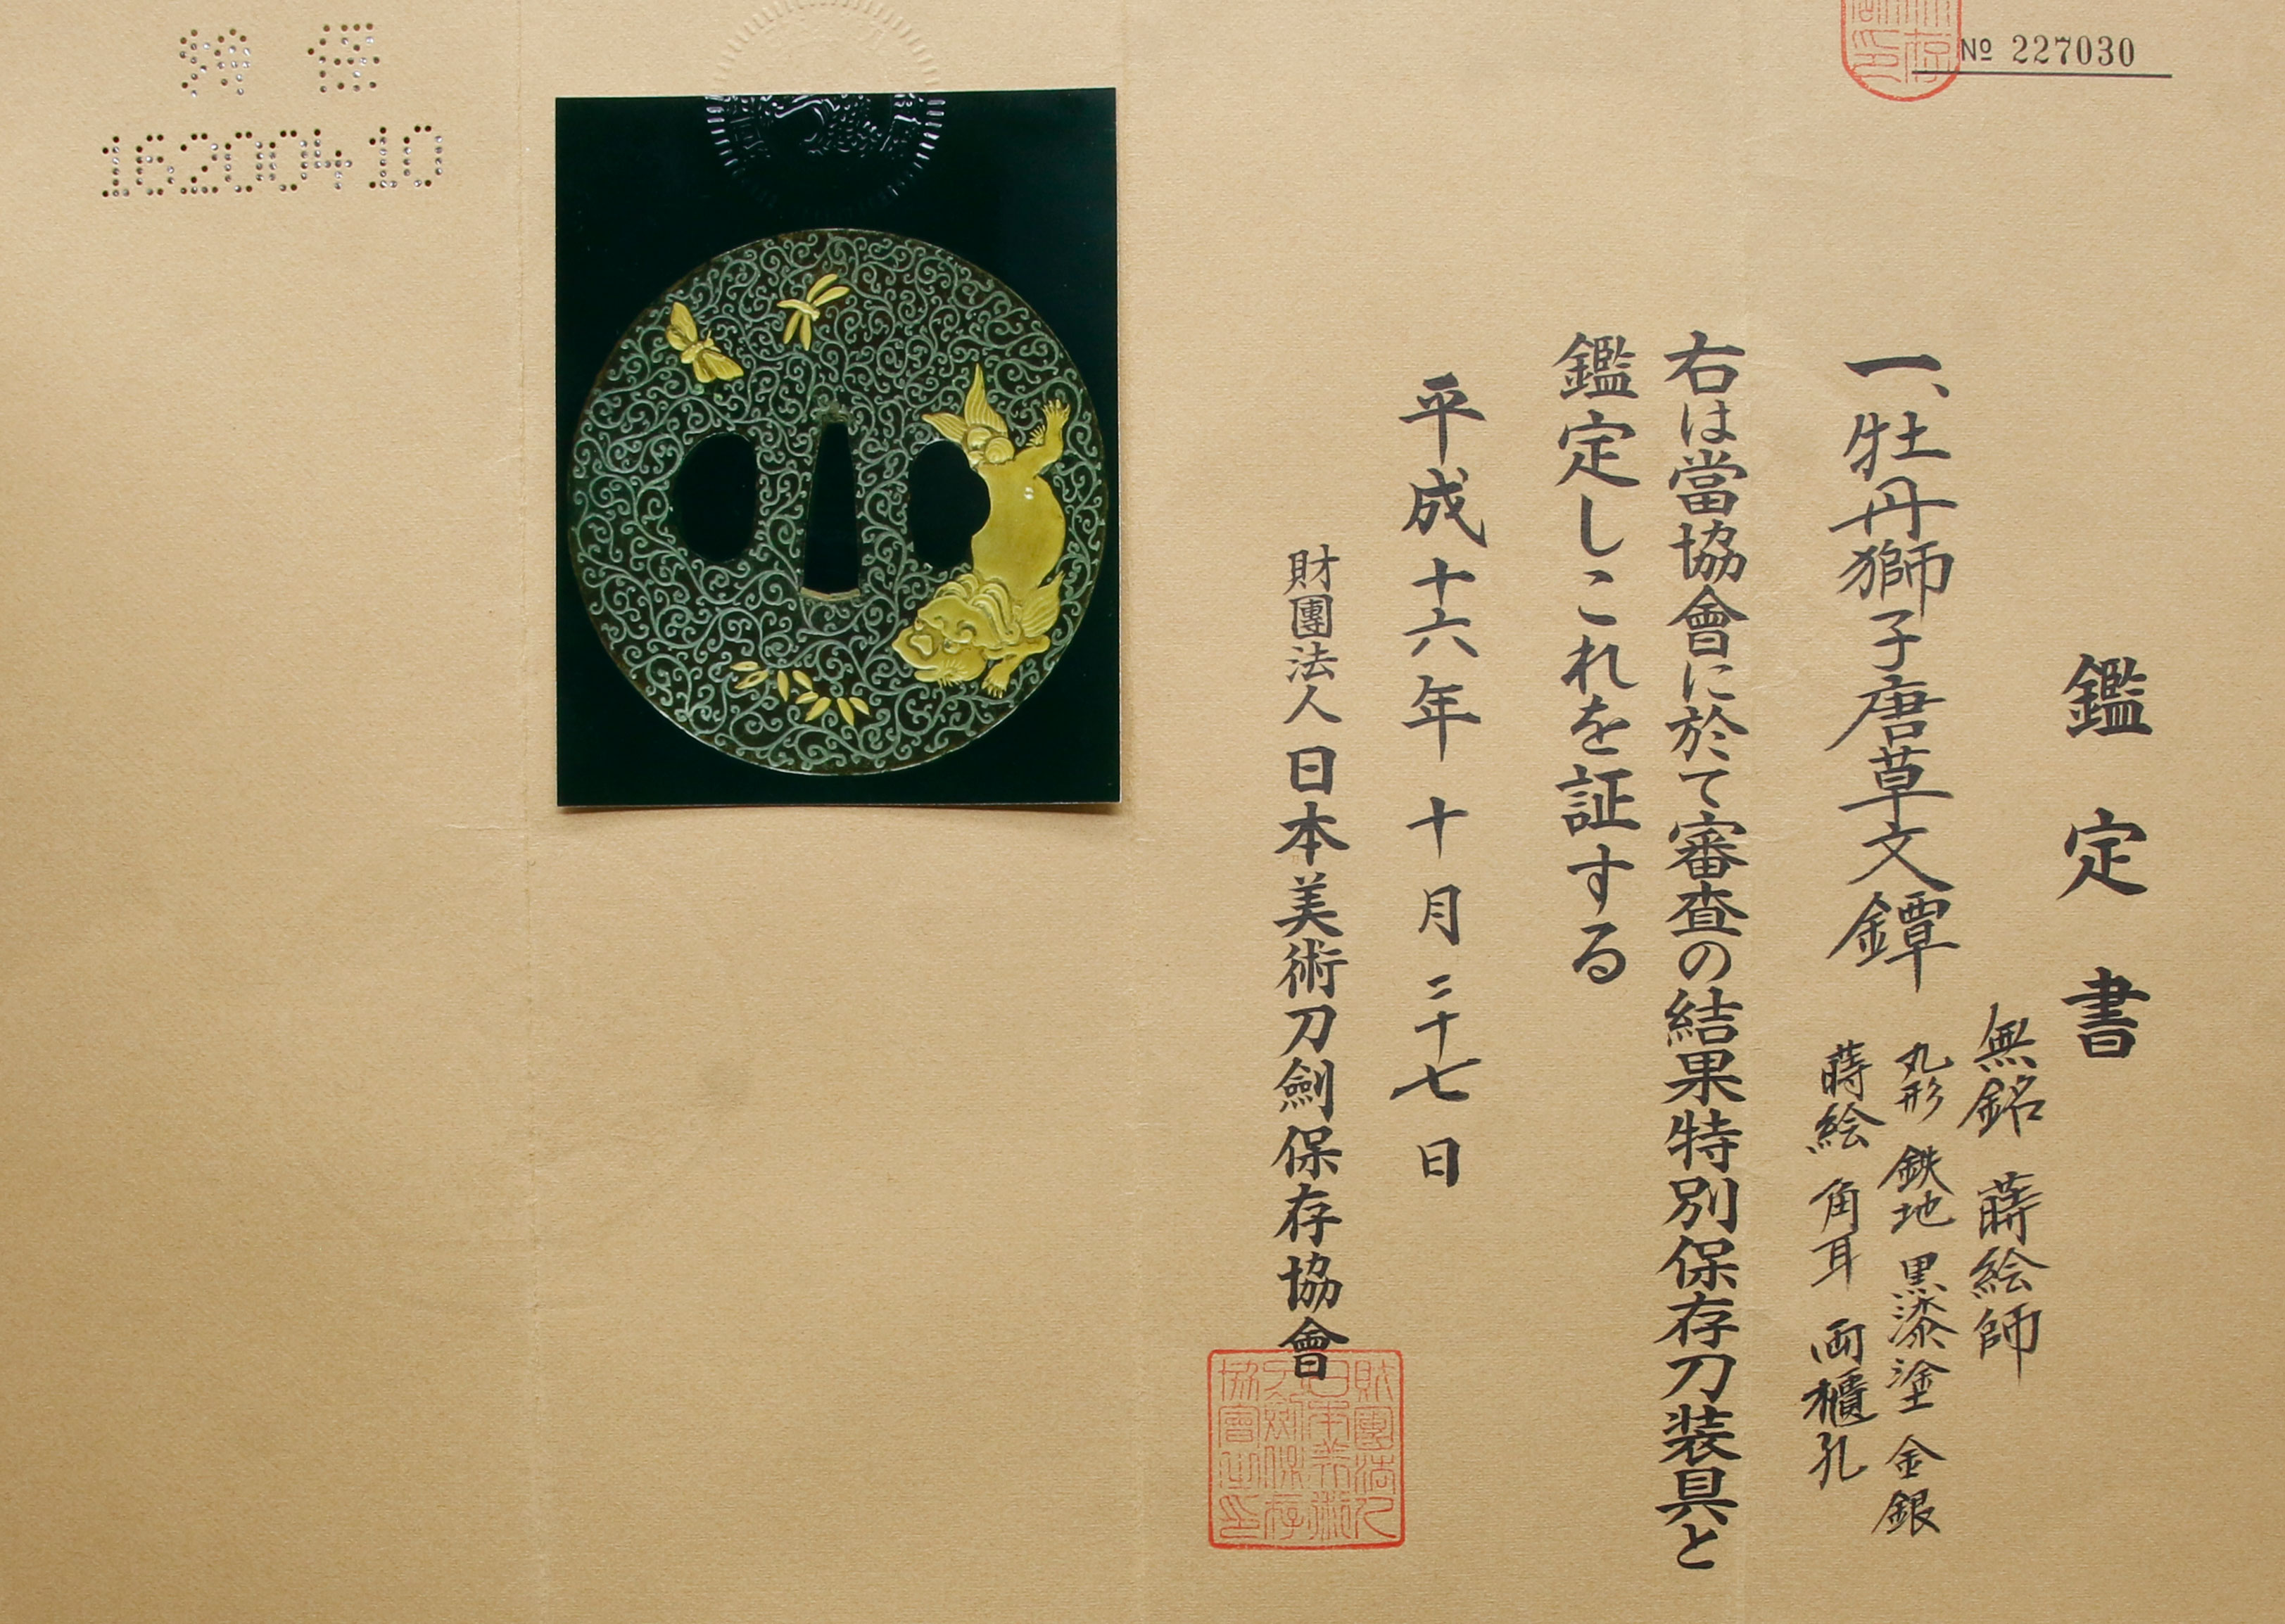 № 227030
鑑定書
一、牡丹獅子唐草文鐔
無銘 蒔絵師
丸形 鉄地 黒漆塗 金銀
蒔絵 角耳 両櫃孔
右は當協會に於て審査の結果特別保存刀装具と
鑑定しこれを証する
平成十六年十月二十七日
財團法人日本美術刀劍保存協會
財團法人
日本美術
刀劍保存
協會之印
16200410